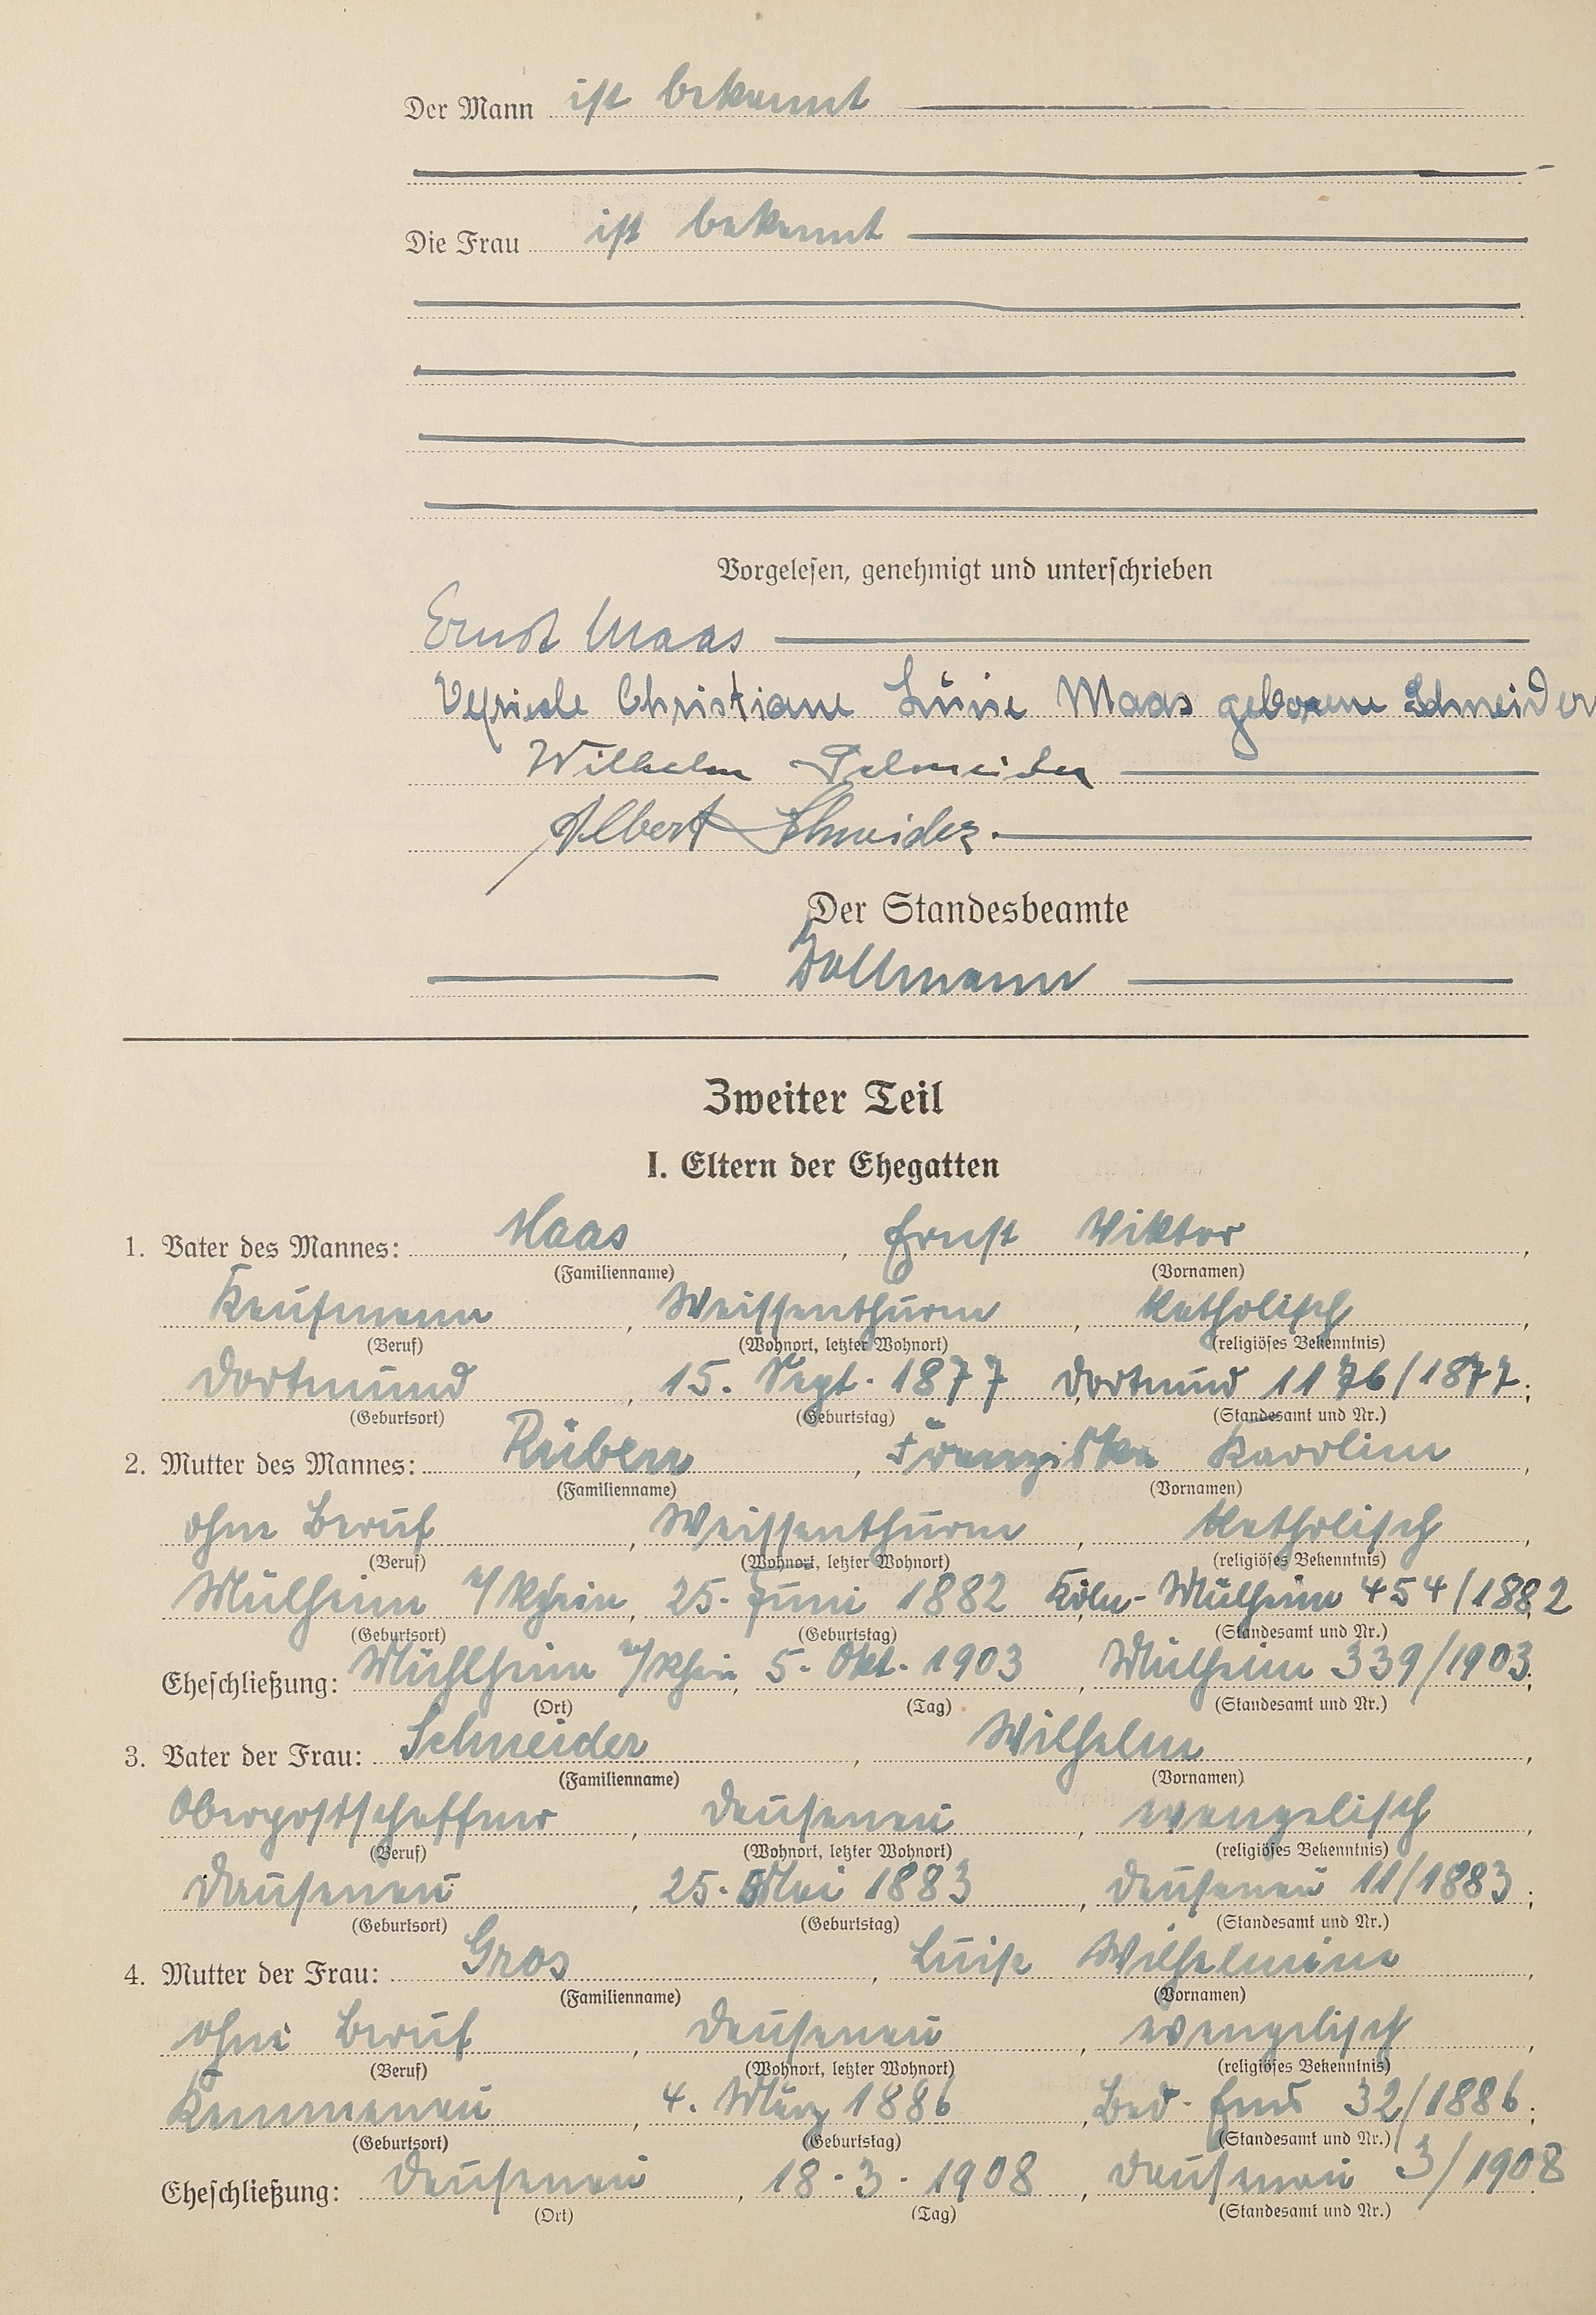 Der Mann ist bekannt
Die Frau ist bekannt
Vorgelesen, genehmigt und unterschrieben
Ernst Maas
Christiane Luise Maas geborene Schneider
Wilhelm Schneider
Albert Schneider.
Der Standesbeamte
Zweiter Teil
I. Eltern der Ehegatten
1. Vater des Mannes: Maas, Ernst Viktor,
(Familienname) (Vornamen)
Kaufmann, Weissenthurm, katholisch,
(Beruf) (Wohnort, letzter Wohnort) (religiöses Bekenntnis)
Dortmund, 15. Sept. 1877 Dortmund 1176/1877;
(Geburtsort) (Geburtstag) (Standesamt und Nr.)
2. Mutter des Mannes: Rüben, Franziska Karolin,
(Familienname) (Vornamen)
ohne Beruf, Weissenthurm, katholisch,
(Beruf) (Wohnort, letzter Wohnort) (religiöses Bekenntnis)
Mülheim a/Rhein, 25. Juni 1882 Köln-Mülheim 454/1882
(Geburtsort) (Geburtstag) (Standesamt und Nr.)
Eheschließung: Mühlheim a/Rhein, 5. Okt. 1903, Mülheim 339/1903;
(Ort) (Tag) (Standesamt und Nr.)
3. Vater der Frau: Schneider, Wilhelm,
(Familienname) (Vornamen)
Oberpostschaffner, Dausenau, evangelisch,
(Beruf) (Wohnort, letzter Wohnort) (religiöses Bekenntnis)
Dausenau, 25. Mai 1883, Dausenau 11/1883;
(Geburtsort) (Geburtstag) (Standesamt und Nr.)
4. Mutter der Frau: Gros, Luise Wilhelmine,
(Familienname) (Vornamen)
ohne Beruf, Dausenau, evangelisch,
(Beruf) (Wohnort, letzter Wohnort) (religiöses Bekenntnis)
Kemmenau, 4. März 1886, Bad-Ems 32/1886;
(Geburtsort) (Geburtstag) (Standesamt und Nr.)
Eheschließung: Dausenau, 18.3.1908, Dausenau 3/1908
(Ort) (Tag) (Standesamt und Nr.)